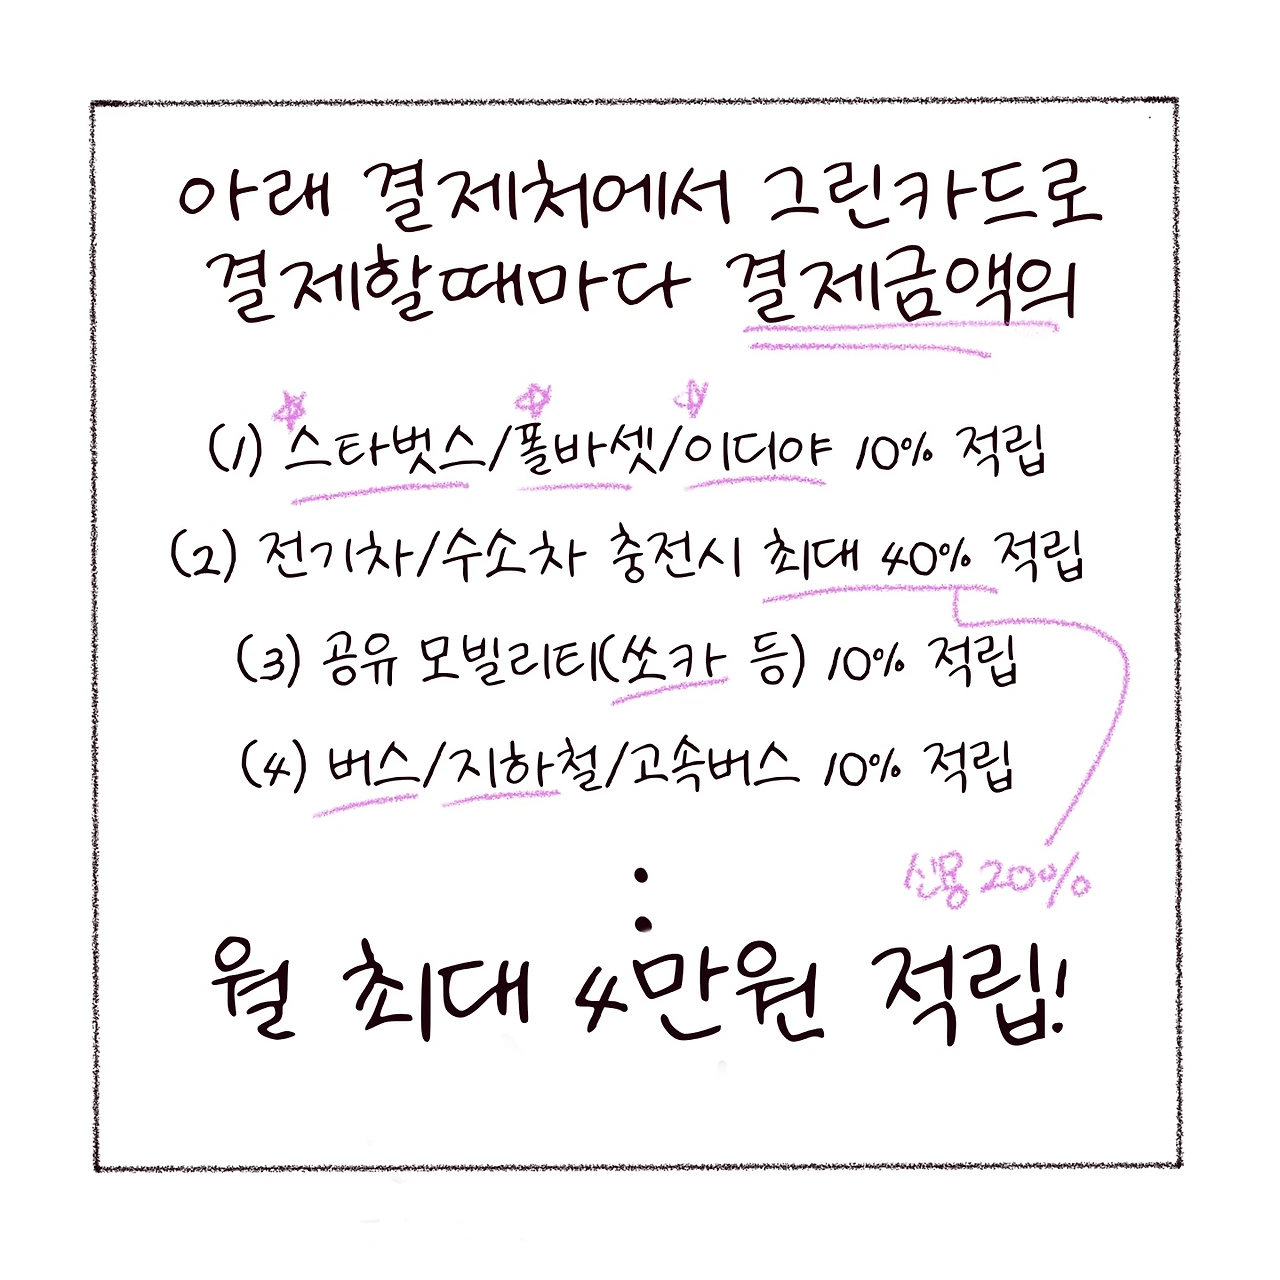 아래 결제처에서 그린카드로
결제할때마다 결제금액의
(1) 스타벗스/폴바셋/이디야 10% 적립
(2) 전기차/수소차 충전시 최대 40% 적립
(3) 공유 모빌리티(쏘카 등) 10% 적립
(4) 버스/지하철/고속버스 10% 적립
신용 20%
:
월 최대 4만원 적립!